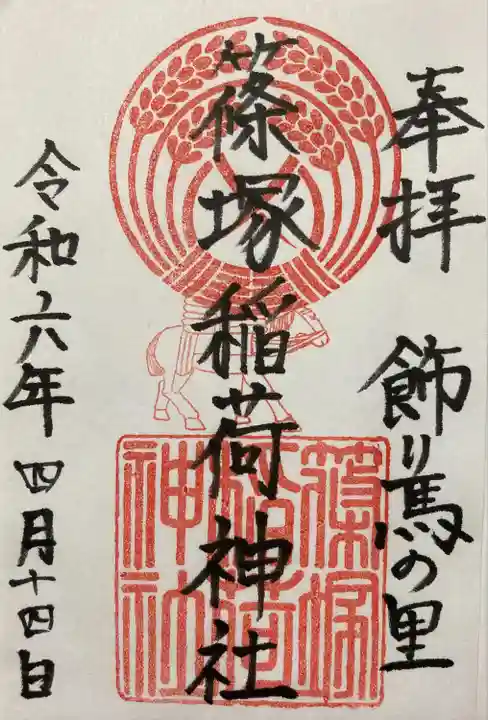 奉拝 飾り馬の里
篠塚稲荷神社
令和六年 四月十四日
篠塚
稲荷
神社